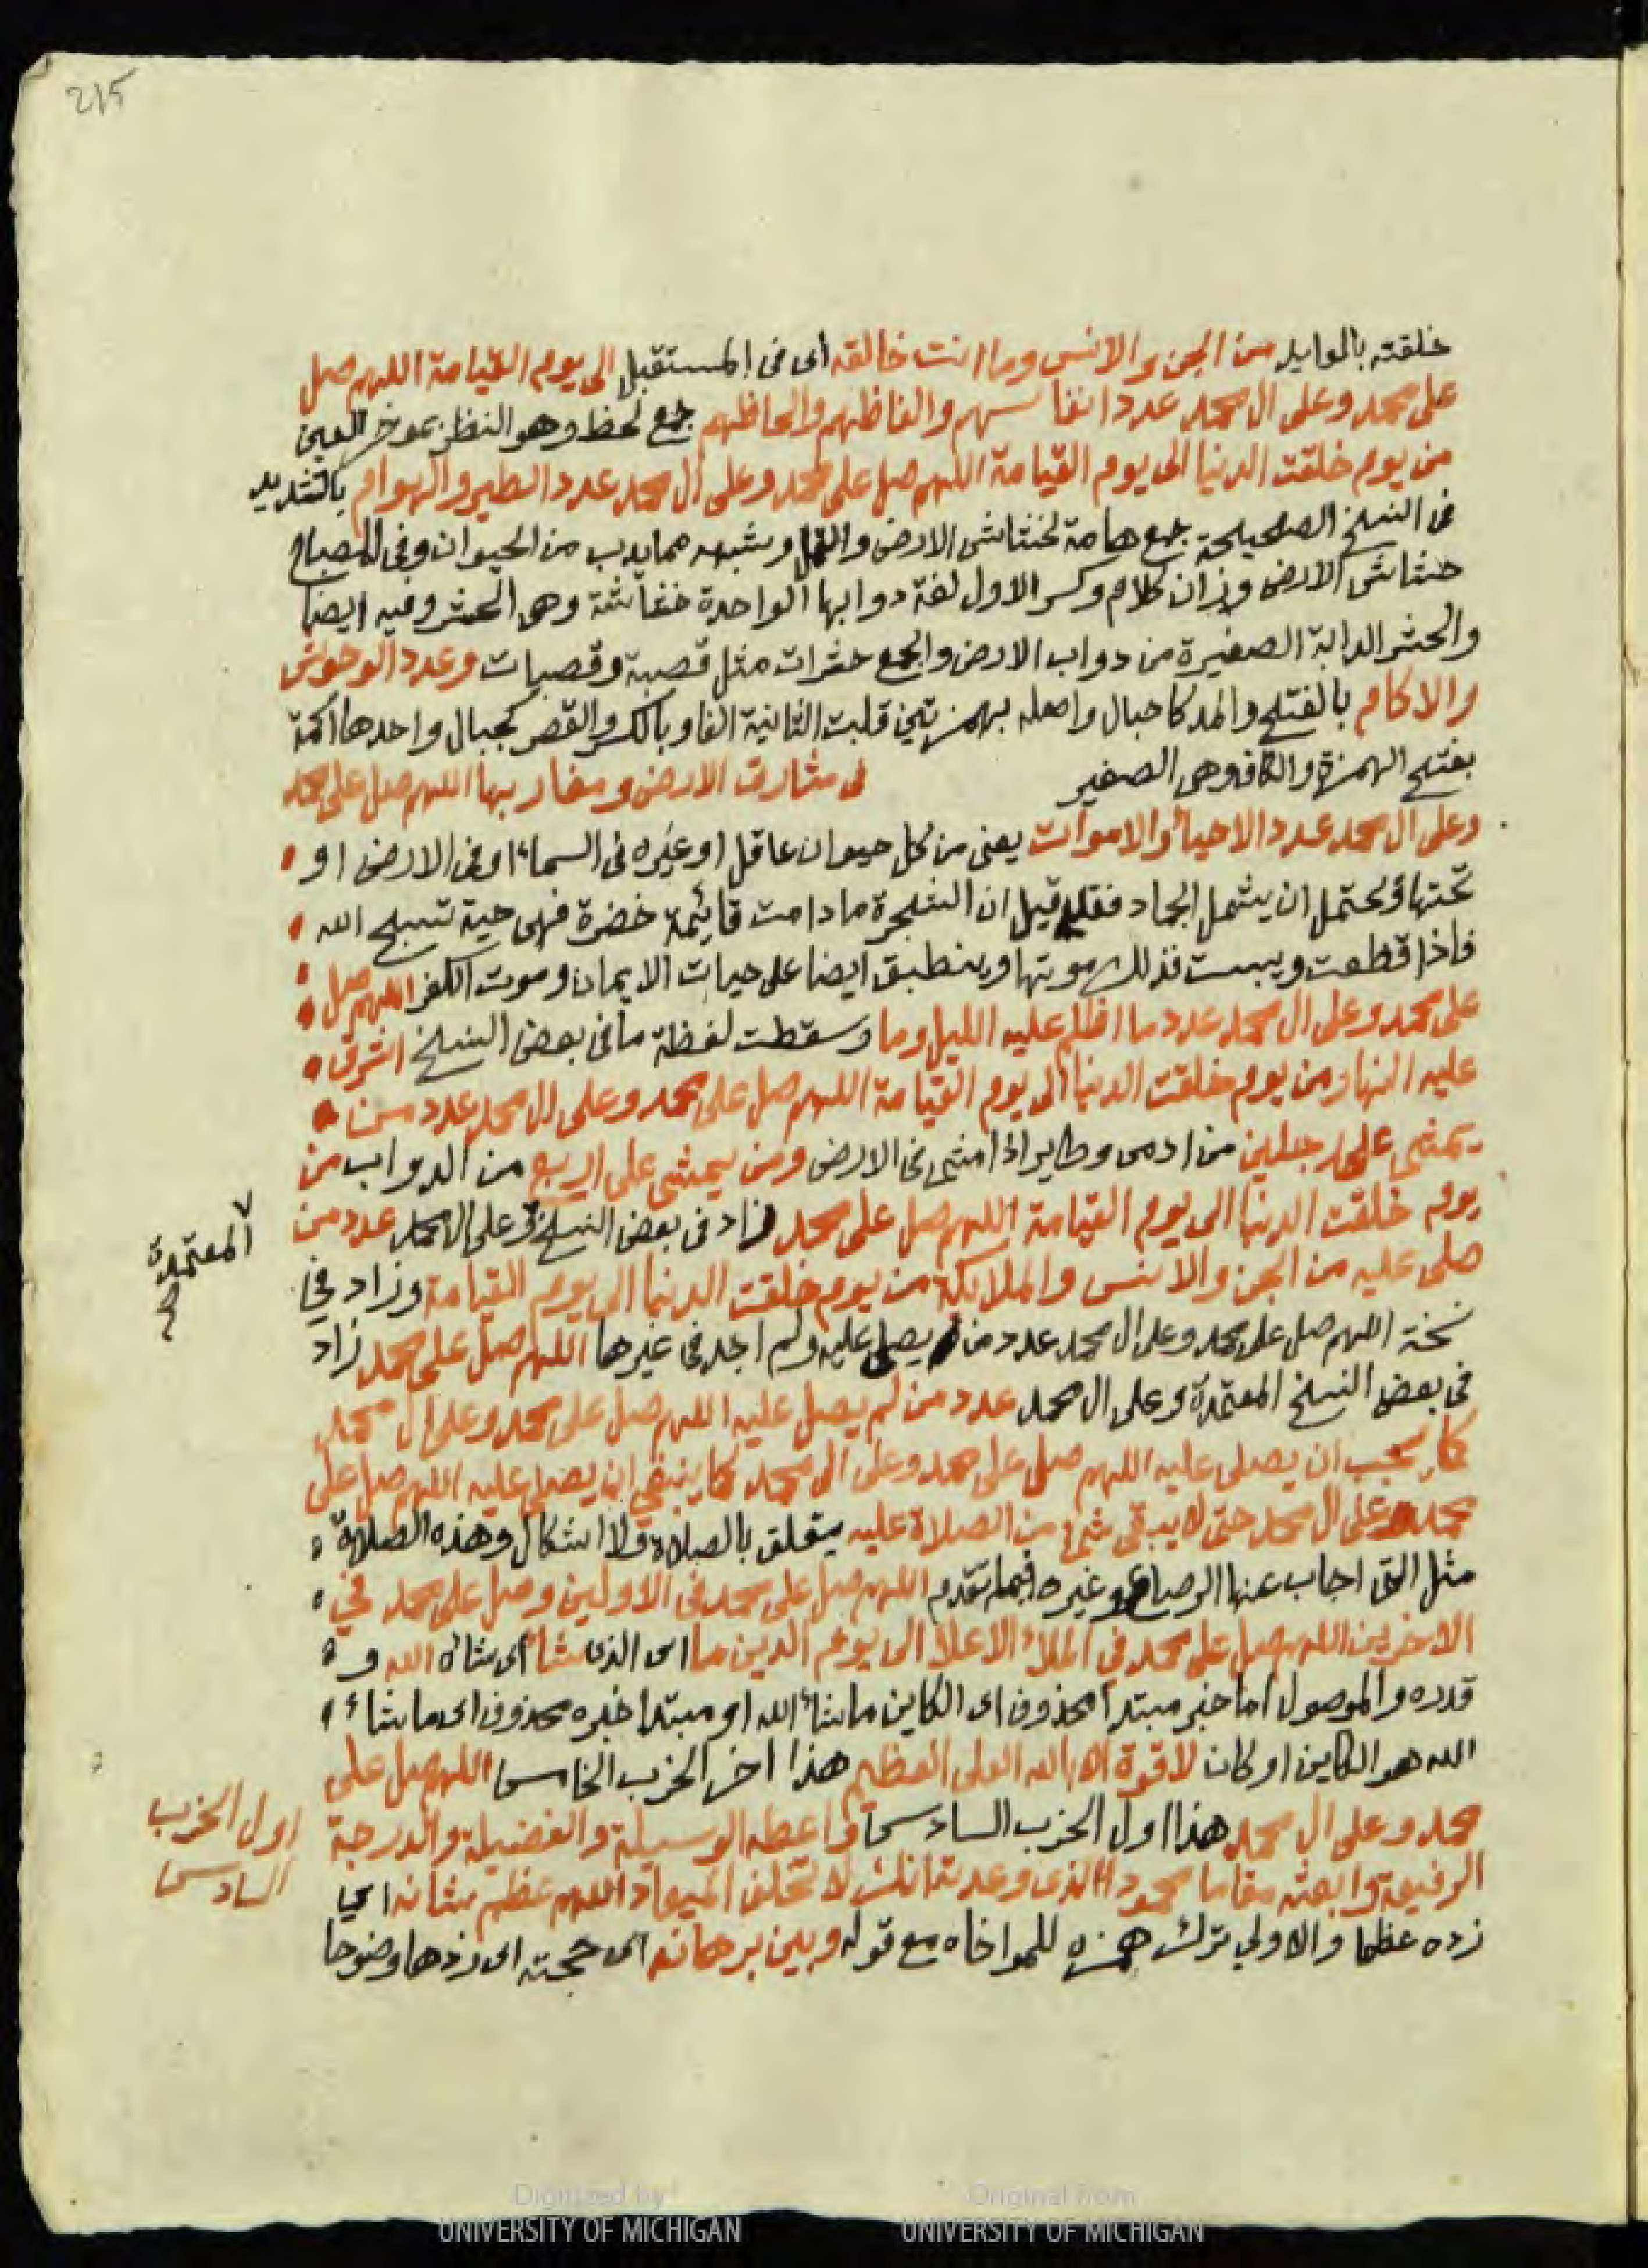 215
خلقته بالمواليد من الجن والانس وما انت خالقه اى فى المستقبل الى يوم القيامة اللهم صل
على محمد وعلى ال محمد عدد انفاسهم والفاظهم والحاظهم جمع لحظ وهو النظر بموخر العين
من يوم خلقت الدنيا الى يوم القيامة اللهم صل على محمد وعلى ال محمد عدد الطير والهوام بالتشديد
فى النسخ الصحيحة جمع هامة لخشاش الارض والقمل وشبهه مما يدب من الحيوان وفى المصباح
خشاش الارض وزان كلام وكسر الاول لغة دوابها الواحدة خشاشة وهى الحشر وفيه ايضا
والحشر الدابة الصغيرة من دواب الارض والجمع حشرات مثل قصبة وقصبات وعدد الوحوش
والاكام بالفتح والمد كاجبال واصله بهمزتين قلبت الثانية الفا وبالكسر والقصر كجبال واحدها اكمة
بفتح الهمزة والكاف وهى الصغير فى مشارق الارض ومغاربها اللهم صل على محمد
وعلى ال محمد عدد الاحياء والاموات يعنى من كل حيوان عاقل او غيره فى السماء او فى الارض او
تحتها ويحتمل ان يشمل الجماد فقد قيل ان الشجرة ما دامت قائمة خضرة فهى حية تسبح الله
فاذا قطعت ويبست فذلك موتها وينطبق ايضا على حيات الايمان وموت الكفر اللهم صل
على محمد وعلى ال محمد عدد ما اظلم عليه الليل وما وسقطت لفظة ما فى بعض النسخ اشرق
عليه النهار من يوم خلقت الدنيا الى يوم القيامة اللهم صل على محمد وعلى ال محمد عدد من
يمشى على رجلين من ادمى وطاير اذا مشى فى الارض ومن يمشى على اربع من الدواب من
يوم خلقت الدنيا الى يوم القيامة اللهم صل على محمد زاد فى بعض النسخ وعلى ال محمد عدد من
المعتمدة
صلى عليه من الجن والانس والملائكة من يوم خلقت الدنيا الى يوم القيامة وزاد في
نسخة اللهم صل على محمد وعلى ال محمد عدد من يصلى عليه ولم اجد في غيرها اللهم صل على محمد زاد
فى بعض النسخ المعتمدة وعلى ال محمد عدد من لم يصل عليه اللهم صل على محمد وعلى ال محمد
كما يجب ان يصلى عليه اللهم صل على محمد وعلى ال محمد كما ينبغي ان يصلى عليه اللهم صل على
محمد وعلى ال محمد حتى لا يبقى شىء من الصلاة عليه يتعلق بالصلاة ولا اشكال وهذه الصلاة
مثل التى اجاب عنها الرصاع وغيره فيما تقدم اللهم صل على محمد فى الاولين وصل على محمد في
الاخرين اللهم صل على محمد فى الملأ الاعلا الى يوم الدين ما اى الذى شاء اى شاه الله و
قدره والموصول اما خبر مبتدا محذوف اى الكاين ما شاء الله او مبتدا خبره محذوف اى ما شاء
الله هو الكاين او كان لا قوة الا بالله العلى العظيم هذا اخر الحزب الخامس اللهم صل على
محمد وعلى ال محمد هذا اول الحزب السادس واعطه الوسيلة والفضيلة والدرجة
اول الحزب
السادس
الرفيعة وابعثه مقاما محمودا الذى وعدته انك لا تخلف الميعاد اللهم عظم شانه اى
زده عظما والاولي ترك همزه للمواخاه مع قوله وبين برهانه اى حجته اى زدها وضوحا
Digitized by
UNIVERSITY OF MICHIGAN
Original from
UNIVERSITY OF MICHIGAN